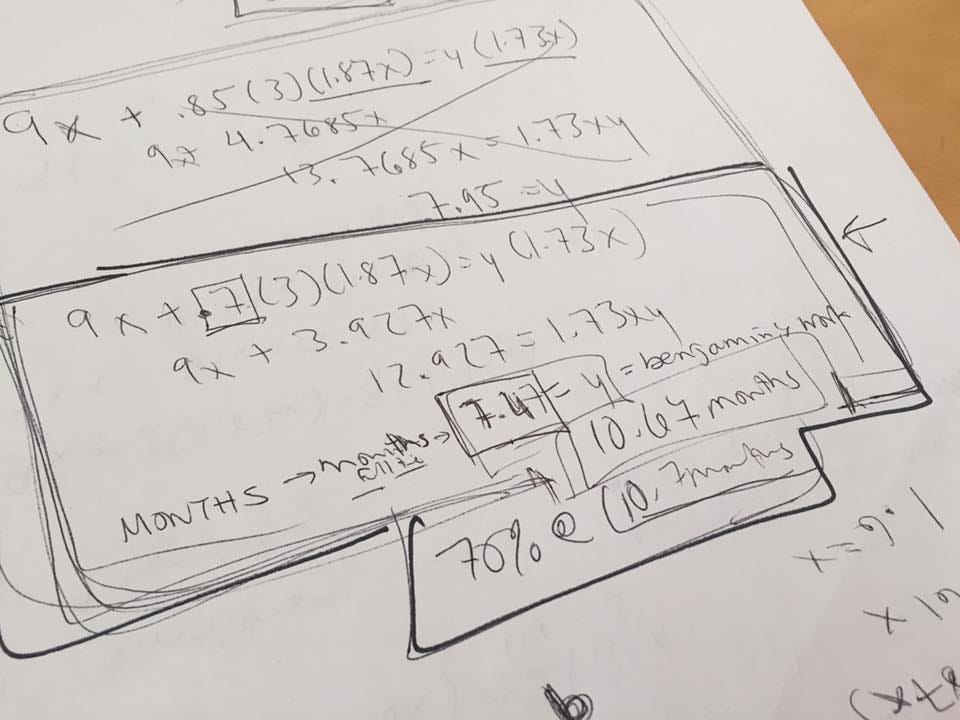 9x + .85(3)(1.87x) = y(1.73x)
9x 4.7685x
13.7685x = 1.73xy
7.95 = y
9x + .7(3)(1.87x) = y(1.73x)
9x + 3.927x
12.927 = 1.73xy
7.47 = y = bengamin's work
10.67 months
MONTHS → months →
70% @ (10.7 months
1.6 = x
x
b